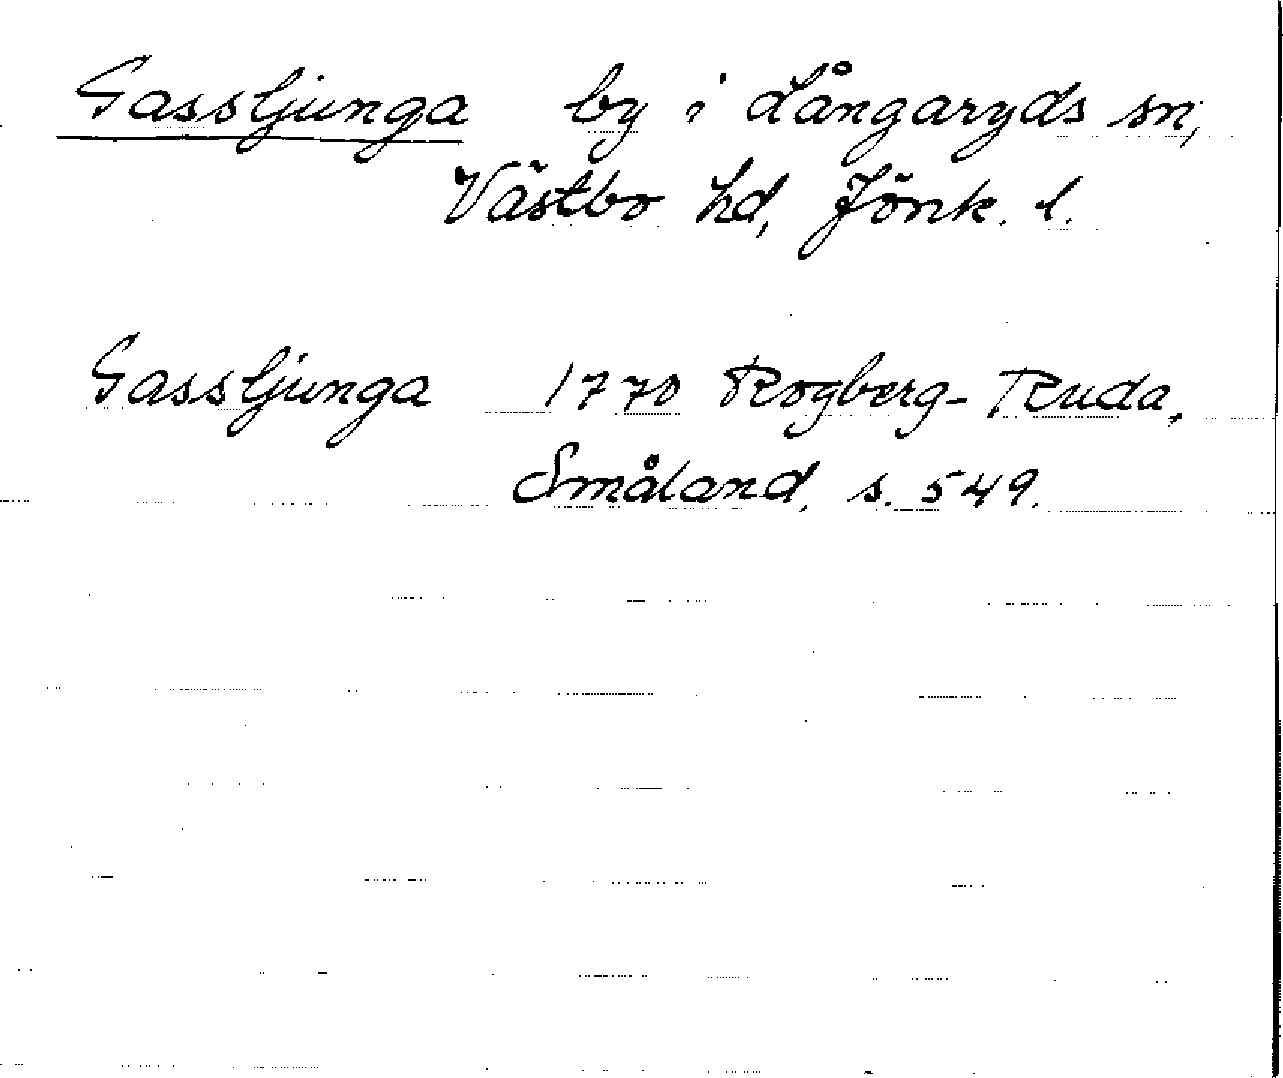 Gassljunga by i Långaryds sn,
Västbo hd, Jönk. l.
Gassljunga 1770 Rogberg-Ruda,
Småland, s. 549.